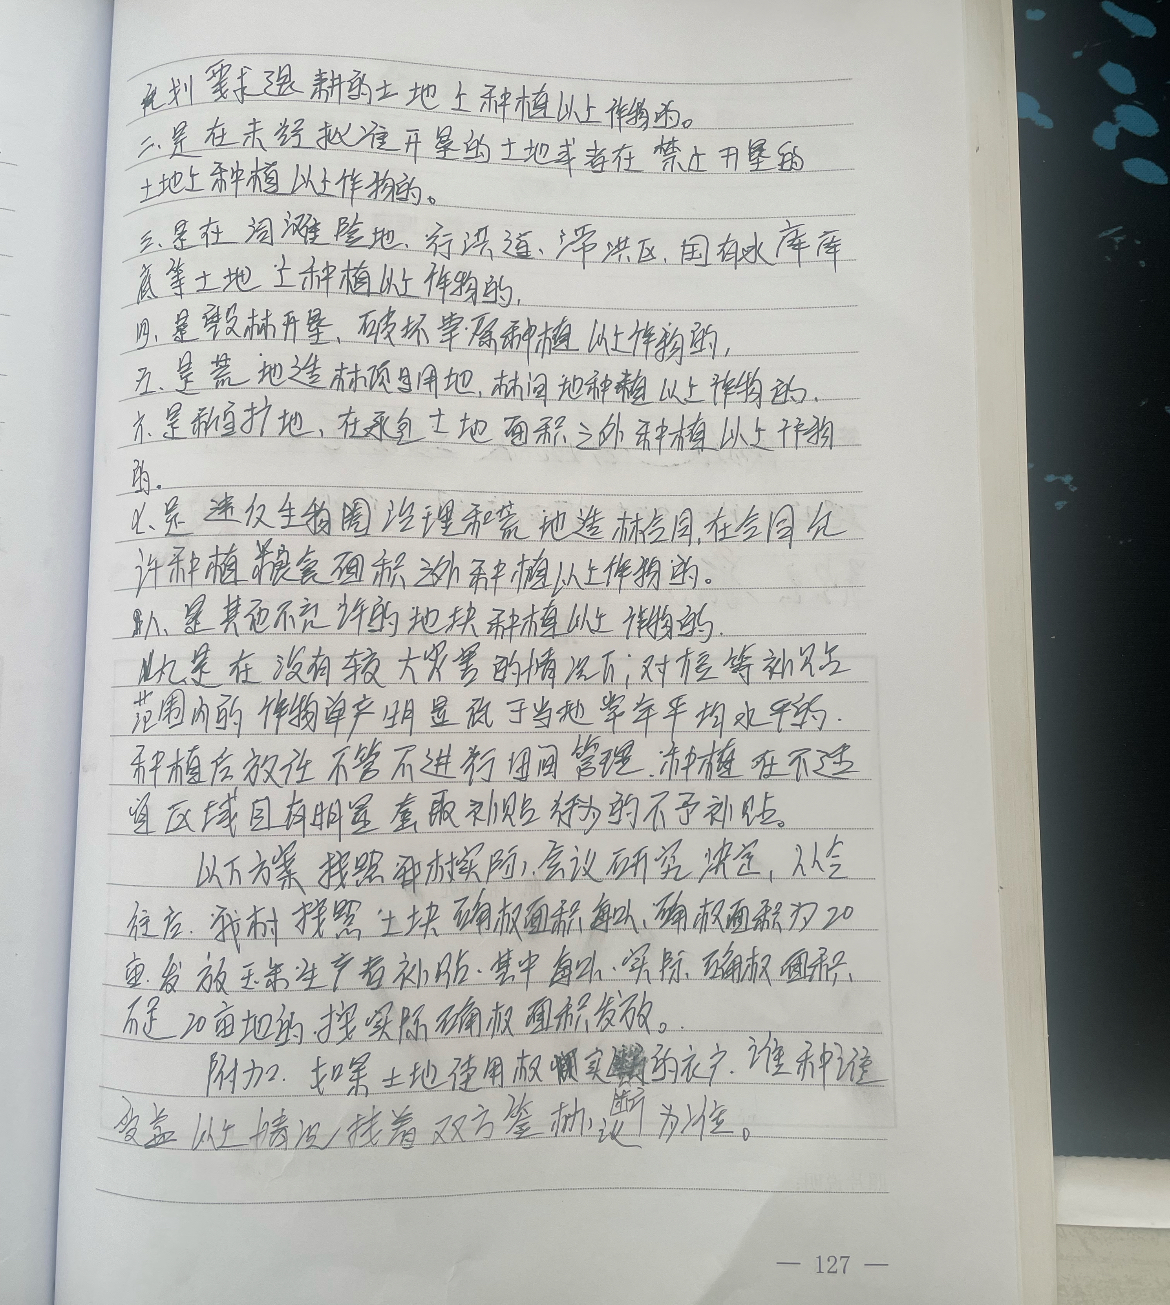 规划要求退耕的土地上种植以上作物的。
二、是在未经批准开垦的土地或者在禁止开垦的
土地上种植以上作物的。
三、是在河滩险地、行洪道、滞洪区、国有水库库
底等土地上种植以上作物的,
四、是毁林开垦、破坏草原种植以上作物的,
五、是荒地造林项目用地,林间地种植以上作物的.
六、是私自扩地、在承包土地面积之外种植以上作物
的。
七、是违反生物圈治理和荒地造林合同,在合同允
许种植粮食面积之外种植以上作物的。
八、是其他不允许的地块种植以上作物的.
九、是在没有较大灾害的情况下;对大豆等补贴
范围内的作物单产明显低于当地常年平均水平的.
种植后放任不管不进行田间管理.种植在不适
宜区域且有明显套取补贴行为的不予补贴。
以下方案按照我村实际,会议研究决定,从今
往后.我村按照土块确权面积每人、确权面积为20
亩.发放玉米生产者补贴.其中每人.实际确权面积
不足20亩地的.按实际确权面积发放。
附加2.如果土地使用权 的农户.谁种谁
受益以上情况按着双方签协议 为准。
— 127 —